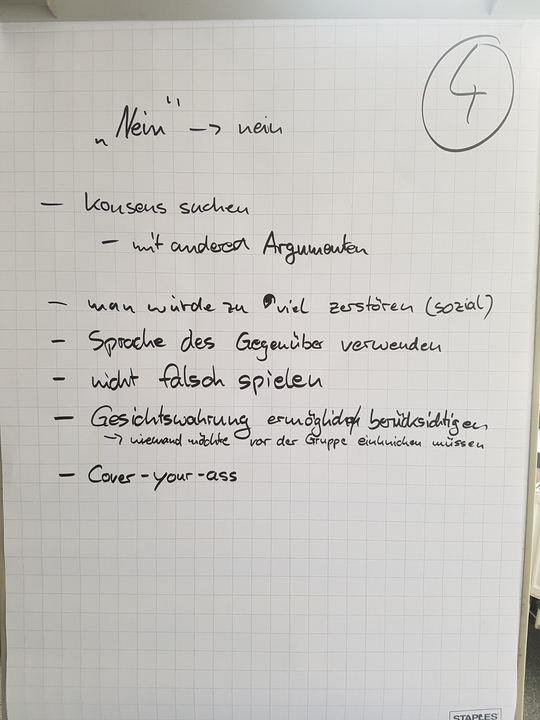 4
„Nein" -> nein
- Konsens suchen
- mit anderen Argumenten
- man würde zu viel zerstören (sozial)
- Sprache des Gegenüber verwenden
- nicht falsch spielen
- Gesichtswahrung ermöglichen berücksichtigen
-> niemand möchte vor der Gruppe einknicken müssen
- Cover-your-ass
STAPLES